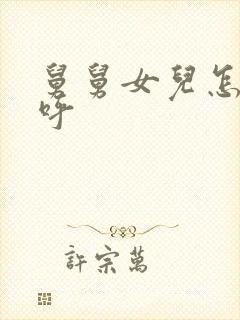 舅舅女兒怎
呼
許宗萬